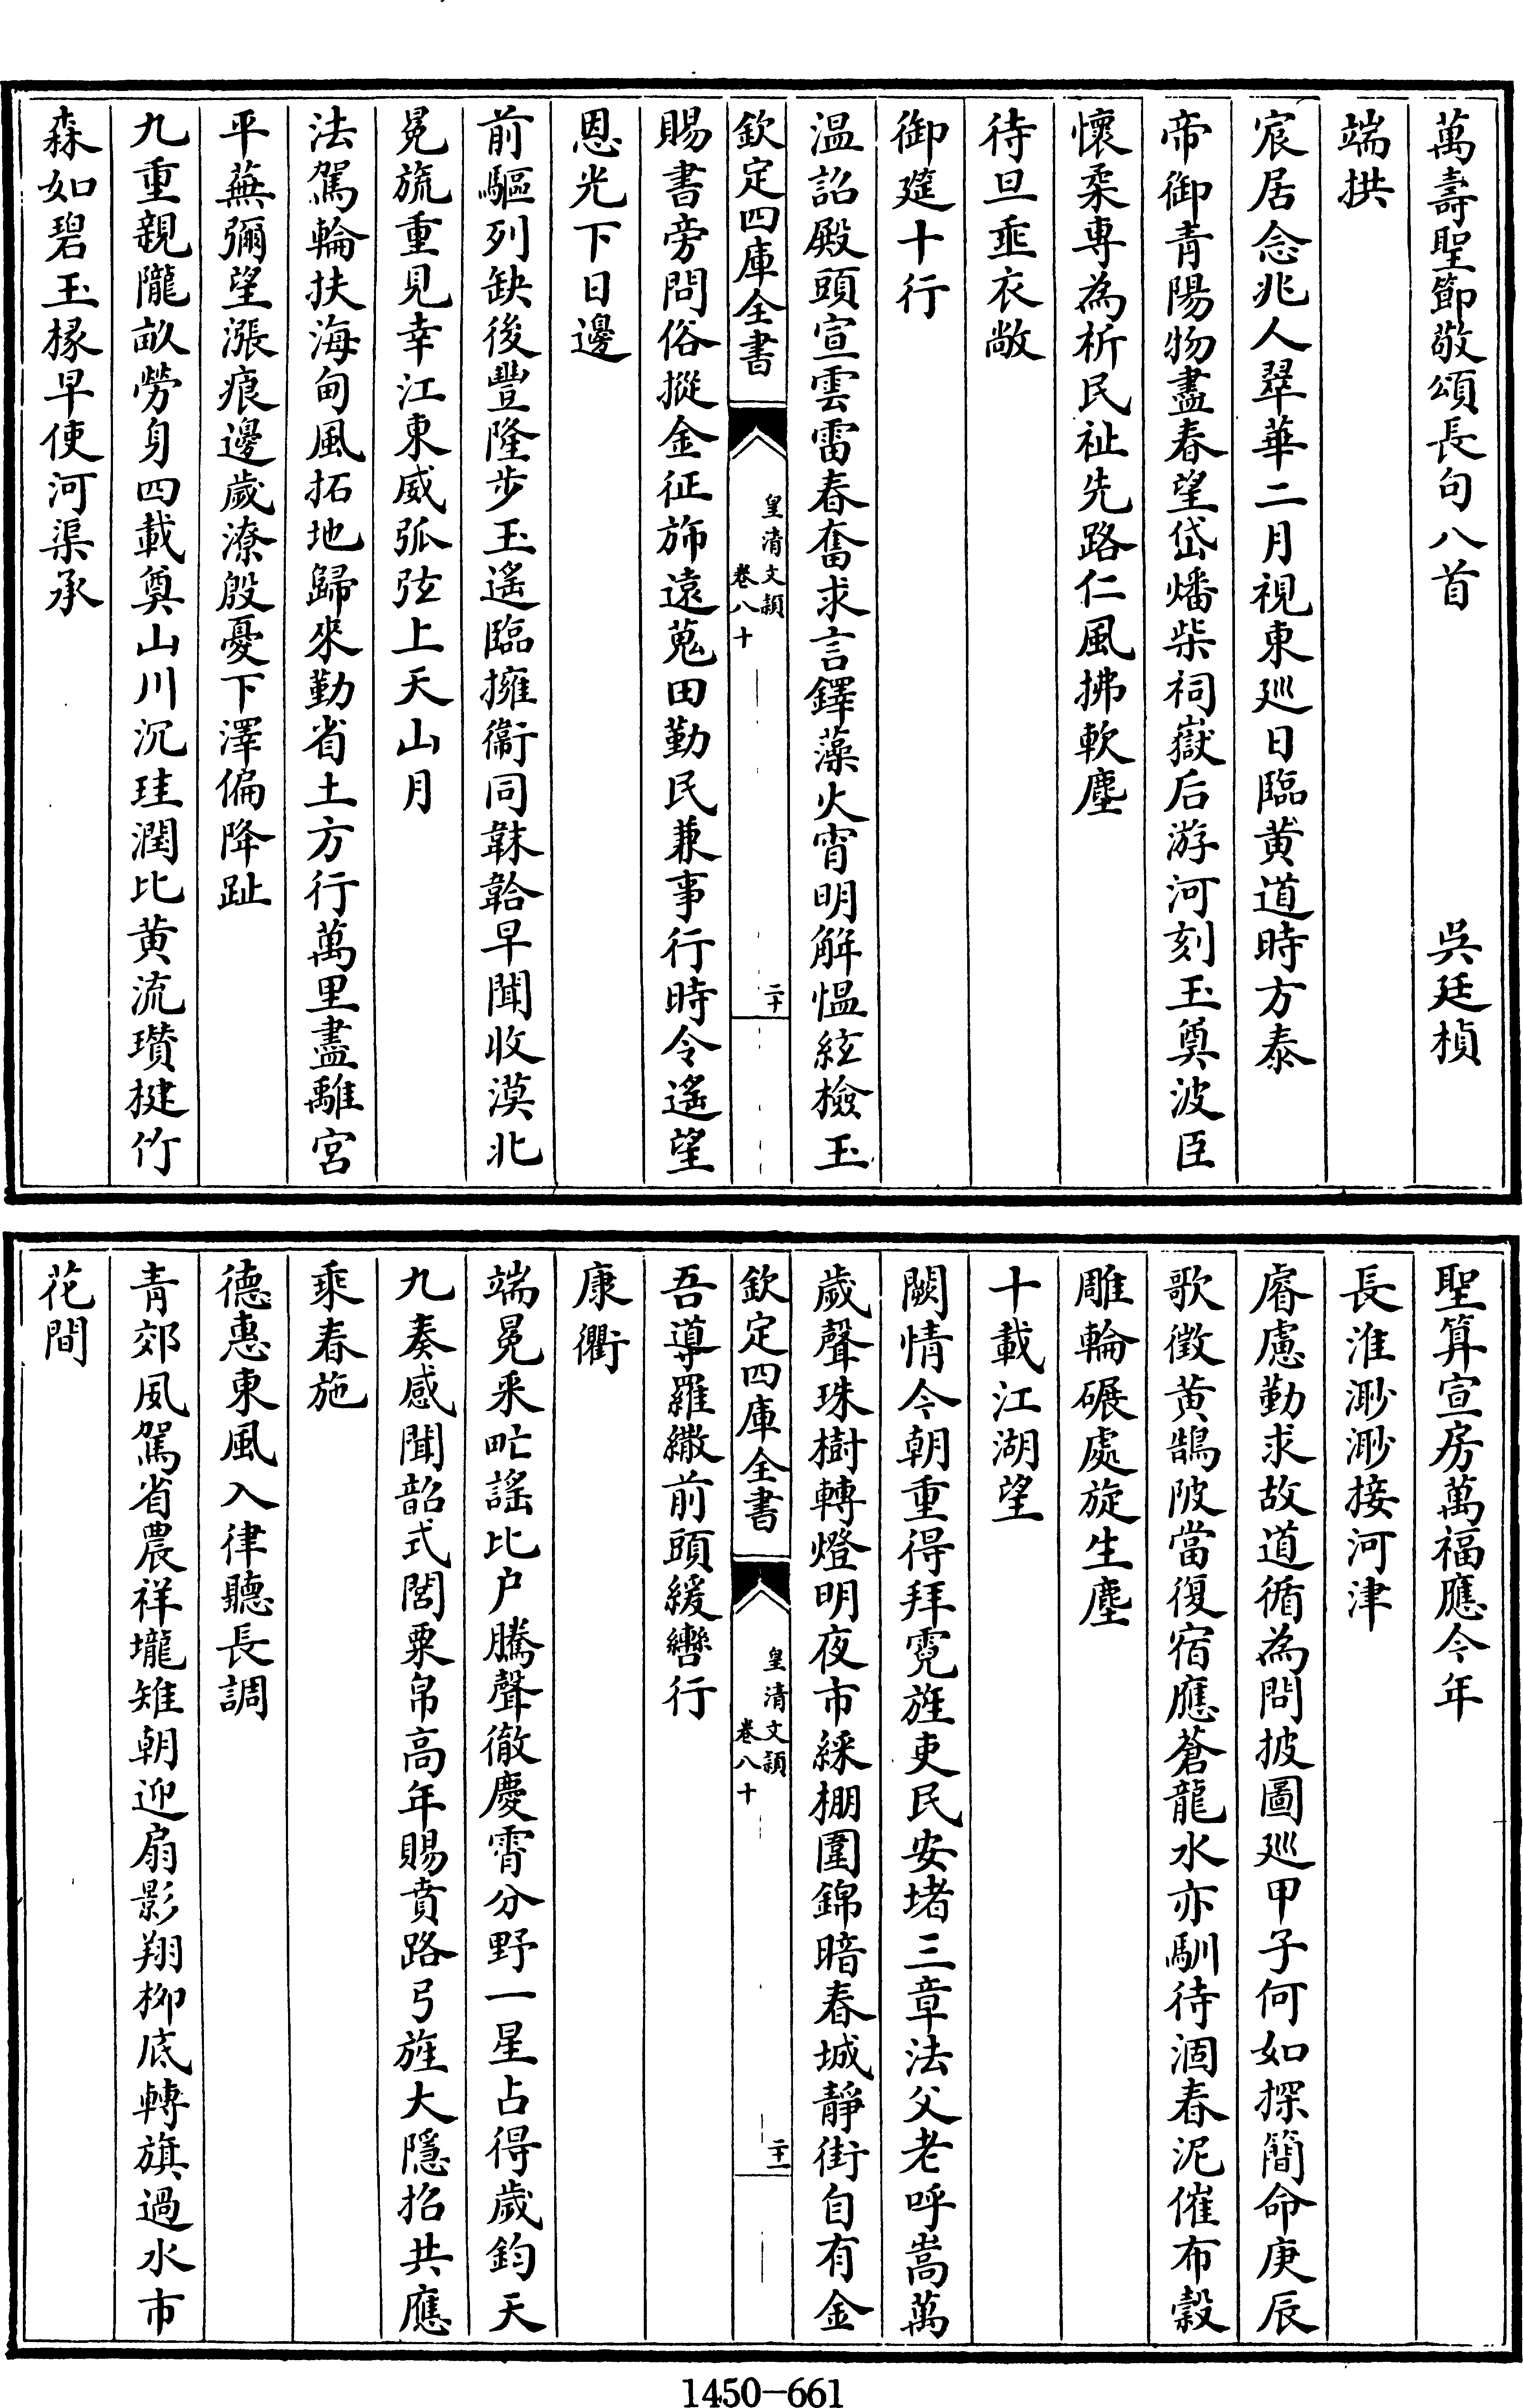 萬壽聖節敬頌長句八首　吳廷楨
端拱
宸居念兆人翠華二月視東巡日臨黄道時方泰
帝御青陽物盡春望岱燔柴祠嶽后游河刻玉奠波臣
懷柔專為祈民祉先路仁風拂軟塵
待旦垂衣敞
御筵十行
温詔殿頭宣雲雷春奮求言鐸藻火宵明解愠絃檢玉
欽定四庫全書
皇清文頴
卷八十
二十
賜書旁問俗摐金征斾遠蒐田勤民兼事行時令遙望
恩光下日邊
前驅列缺後豐隆步玉遙臨擁衞同韎韐早聞收漠北
冕旒重見幸江東威弧弦上天山月
法駕輪扶海甸風拓地歸來勤省土方行萬里盡離宮
平蕪彌望漲痕邊歲潦殷憂下澤偏降趾
九重親隴畝勞身四載奠山川沉珪潤比黄流瓚揵竹
森如碧玉椽早使河渠承
聖算宣房萬福應今年
長淮渺渺接河津
睿慮勤求故道循為問披圖巡甲子何如探簡命庚辰
歌徵黄鵠陂當復宿應蒼龍水亦馴待涸春泥催布穀
雕輪碾處旋生塵
十載江湖望
闕情今朝重得拜霓旌吏民安堵三章法父老呼嵩萬
歲聲珠樹轉燈明夜市綵棚圍錦暗春城靜街自有金
欽定四庫全書
皇清文頴
卷八十
二十一
吾導羅繖前頭緩轡行
康衢
端冕采甿謡比户騰聲徹慶霄分野一星占得歲鈞天
九奏感聞韶式閭粟帛高年賜賁路弓旌大隱招共應
乘春施
德惠東風入律聽長調
青郊夙駕省農祥壠雉朝迎扇影翔栁底轉旗過水市
花間
1450-661